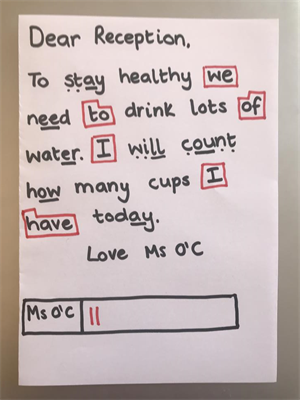 Dear Reception,
To stay healthy we
need to drink lots of
water. I will count
how many cups I
have today.
Love Ms O'C
Ms O'C ||